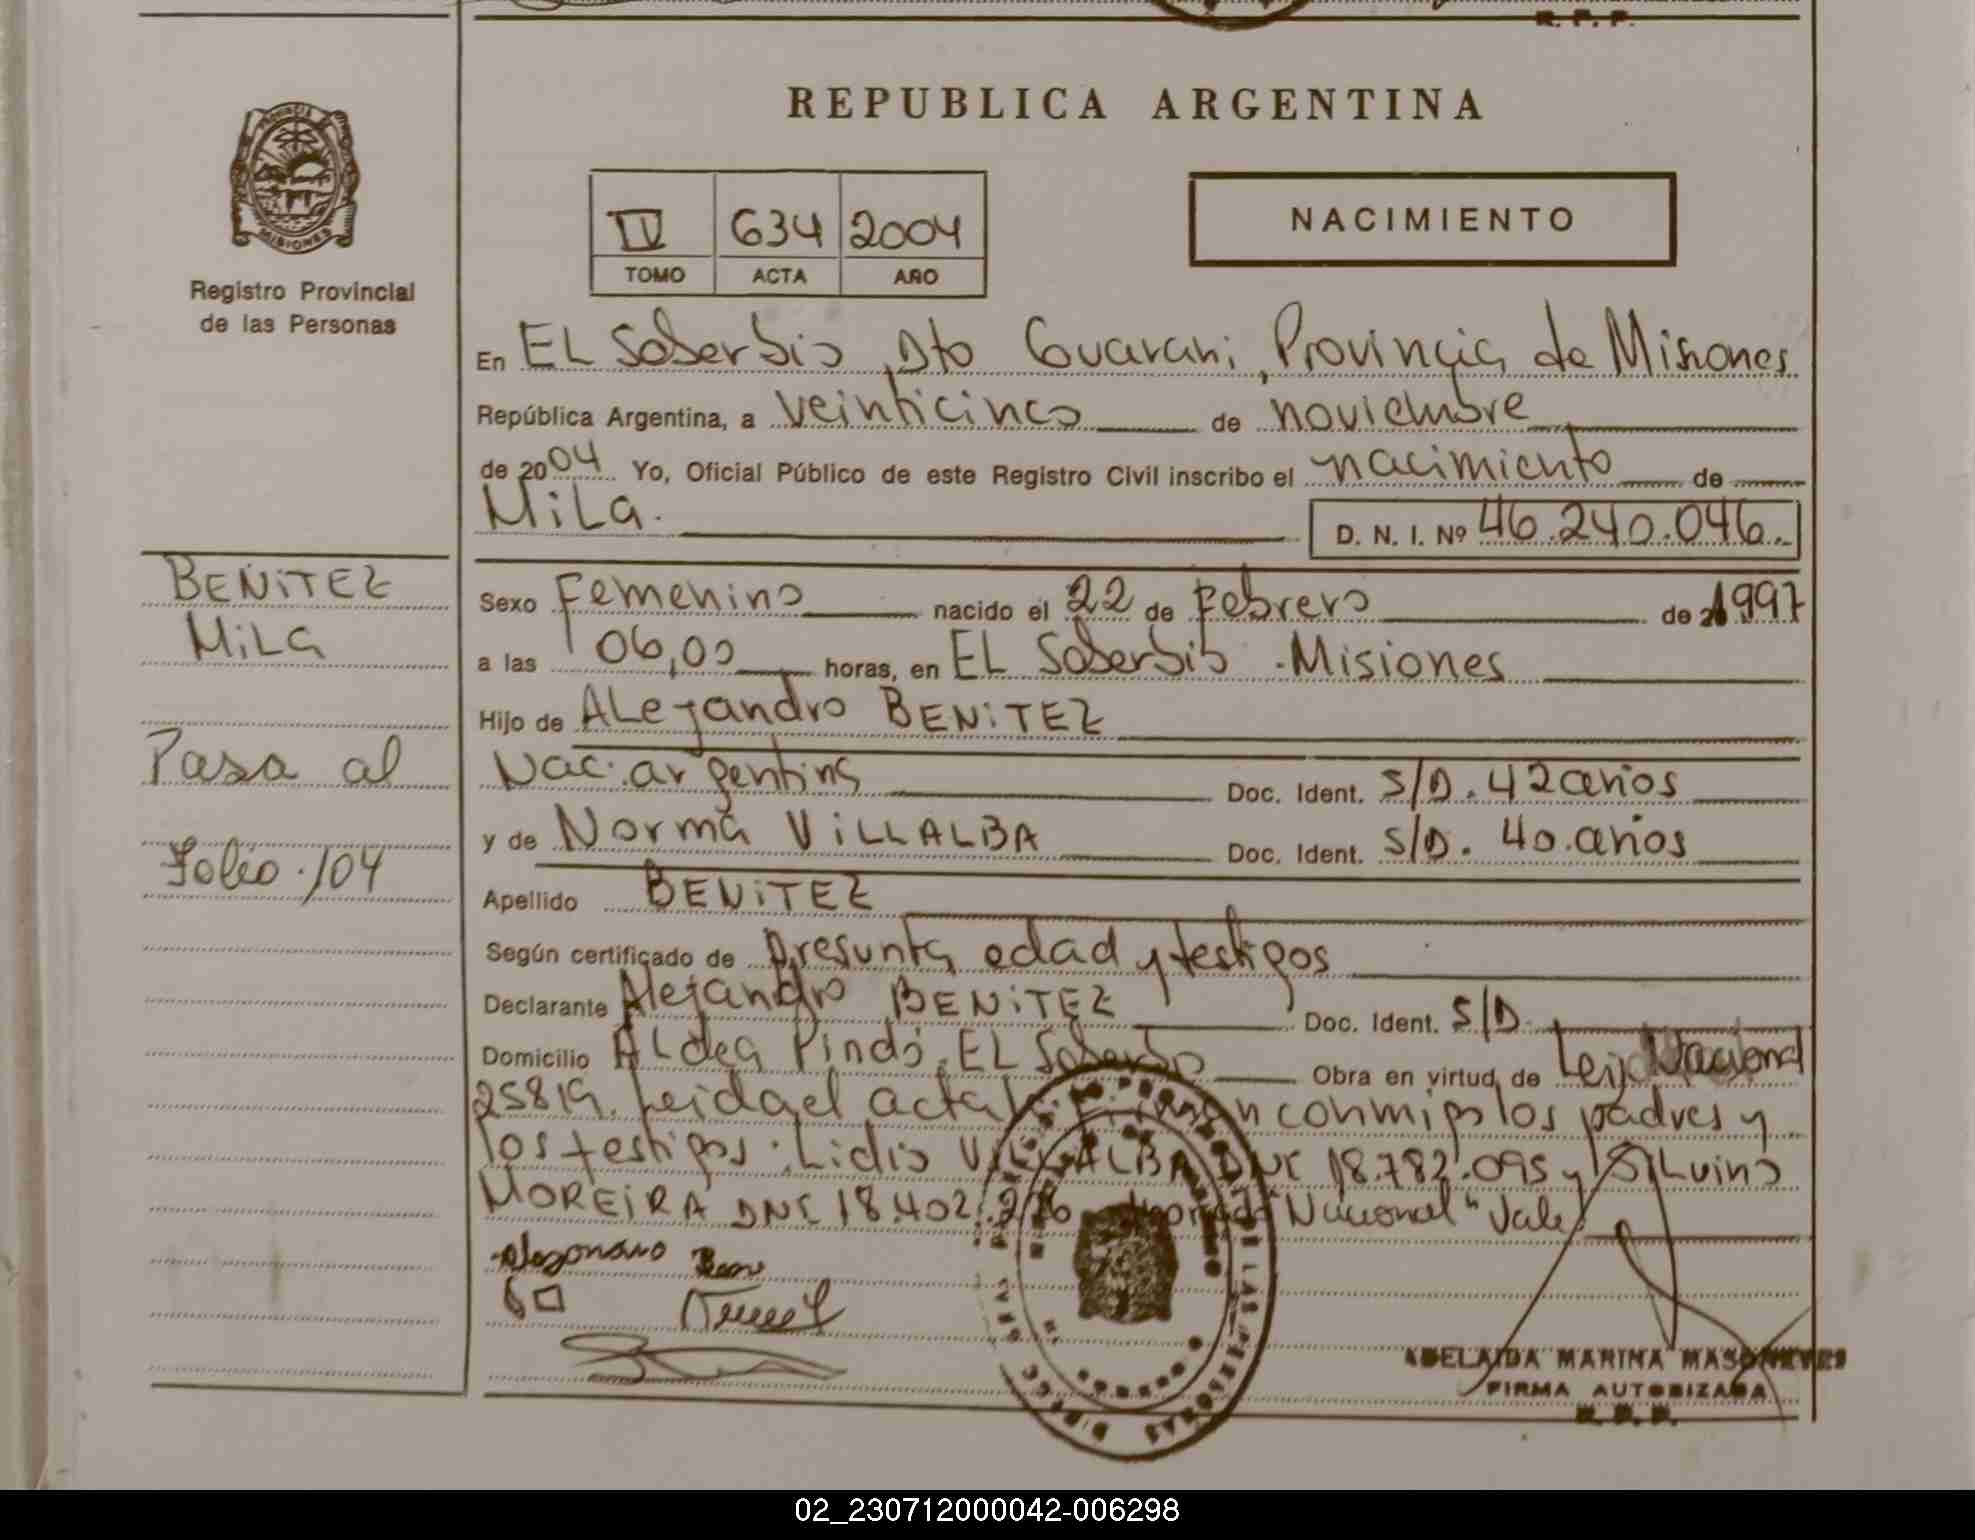 R. P. P.
PROVINCIA
MISIONES
Registro Provincial
de las Personas
REPUBLICA ARGENTINA
IV 634 2004
TOMO ACTA AÑO
NACIMIENTO
En EL Soberbio, Dto Guarani, Provincia de Misiones
República Argentina, a veinticinco de noviembre
de 2004 Yo, Oficial Público de este Registro Civil inscribo el nacimiento de
MiLa. D. N. I. Nº 46.240.046.
BENiTEZ
MiLa
Pasa al
Folio 104
Sexo Femenino nacido el 22 de Febrero de 1997
a las 06,00 horas, en EL Soberbio - Misiones
Hijo de ALejandro BENiTEZ
Nac. argentina Doc. Ident. S/D. 42 años
y de Norma ViLLALBA Doc. Ident. S/D. 40 años
Apellido BENiTEZ
Según certificado de Presunta edad y testigos
Declarante Alejandro BENiTEZ Doc. Ident. S/D.
Domicilio ALdea Pindó, EL Soberbio Obra en virtud de Ley Nacional
25819. Leida el acta la firman conmigo los padres y
los testigos: Lidio ViLLALBA DNI 18.782.095 y SiLvino
MOREiRA DNI 18.402.276 "Nacional" Vale.
ADELAIDA MARINA
FIRMA AUTORIZADA
R. P. P.
02_230712000042-006298